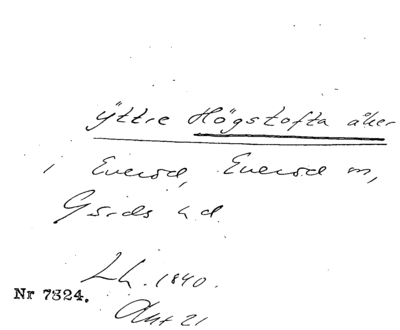 yttre Högstofta åker
i Everöd, Everöd sn,
Gärds hd
Lh. 1840.
Nr 7324.
Akt 21